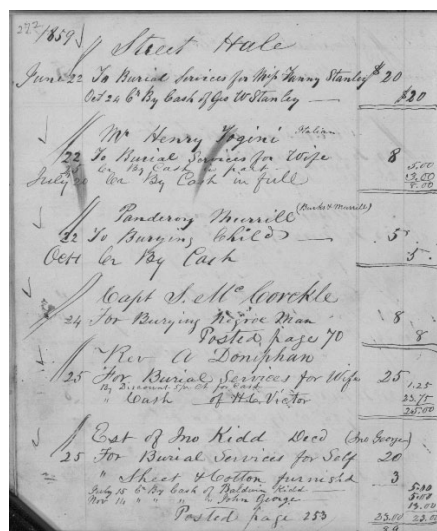 277 1859
Street Hale
June 22 To Burial Services for Miss Fanny Stanley $20
Oct 24 Cr By Cash of Geo W Stanley — $20
Mr Henry Italian
22 To Burial Services for Wife 8
25 Cr By Cash in part 5.00
July 20 Cr By Cash in full 3.00
8.00
Murrill (Burke & Murrill)
22 To Burying Child — 5
Oct 1 Cr By Cash 5
Capt S. McCorckle
24 For Burying Negroe Man 8 8
Posted page 70
Rev A Doniphan
25 For Burial Services for Wife 25
By Discount 5 pr Ct for Cash 1.25
" Cash of H.C. Victor 23.75
25.00
Est of Jno Kidd Decd (Jno George)
25 For Burial Services for Self 20
" Sheet & Cotton furnished 3
July 15 Cr By Cash of Baldwin Kidd — 5.00
Nov 14 " " " " John George — 5.00
13.00
Posted page 253 23.00 23.00